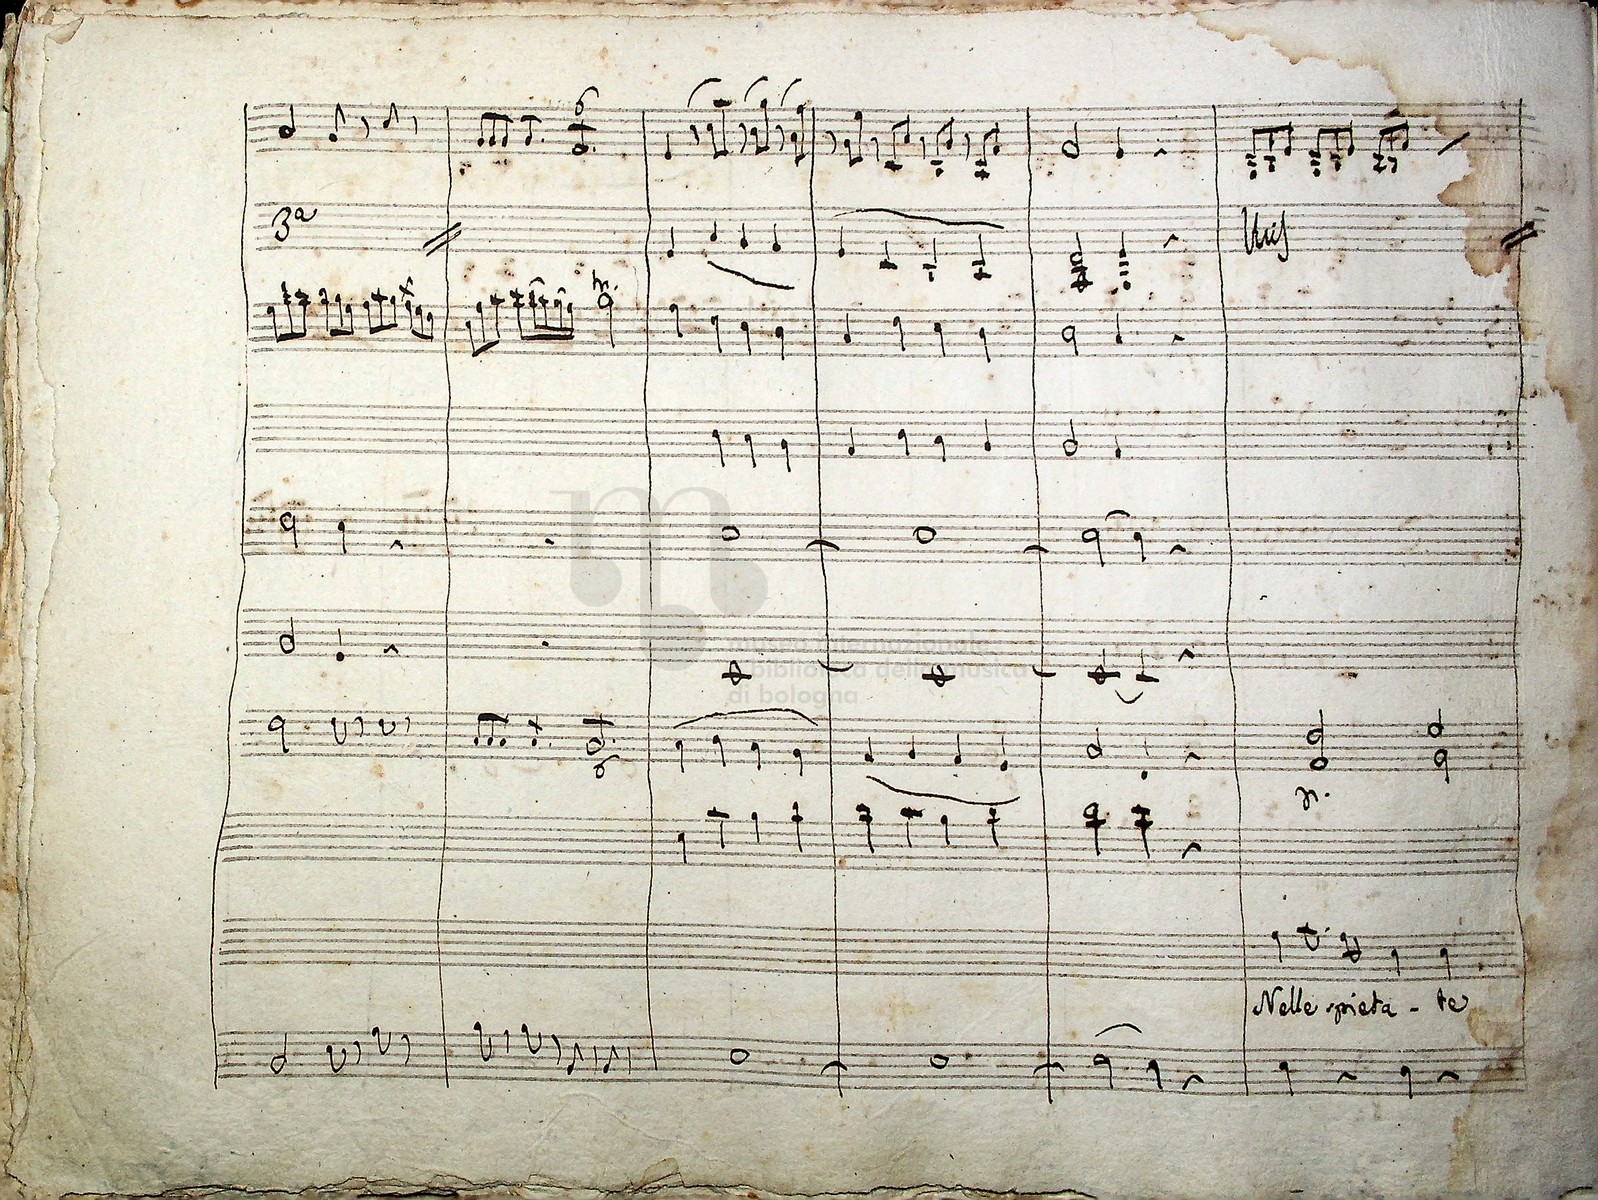 3ª
Unis
museo internazionale
e biblioteca della musica
di bologna
Nelle spieta - te